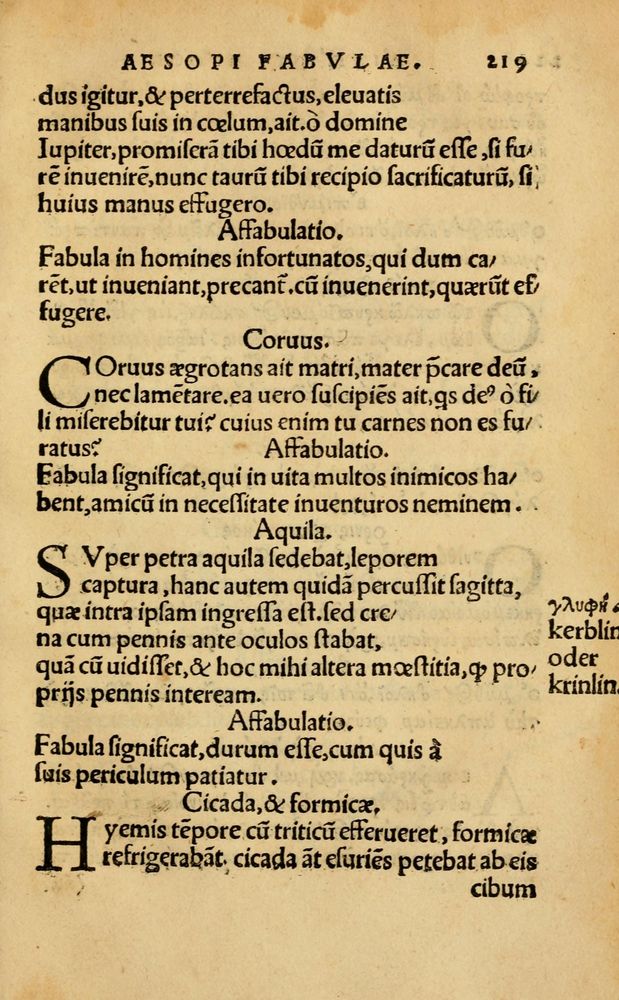 AESOPI FABVLAE. 219
dus igitur,& perterrefactus,eleuatis
manibus ſuis in cœlum,ait.ò domine
Iupiter,promiſerã tibi hœdũ me daturũ eſſe,ſi fu/
rẽ inuenirẽ,nunc taurũ tibi recipio ſacrificaturũ, ſi
huius manus effugero.
Affabulatio.
Fabula in homines infortunatos,qui dum ca/
rẽt,ut inueniant,precant̃.cũ inuenerint,quærũt ef/
fugere.
Coruus.
COruus ægrotans ait matri,mater p̃care deũ,
nec lamẽtare.ea uero ſuſcipiẽs ait,qs deꝰ ò fi/
li miſerebitur tui? cuius enim tu carnes non es fu/
ratus? Affabulatio.
Fabula ſignificat,qui in uita multos inimicos ha/
bent,amicũ in neceſſitate inuenturos neminem.
Aquila.
SVper petra aquila ſedebat,leporem
captura,hanc autem quidã percuſſit ſagitta,
quæ intra ipſam ingreſſa eſt.ſed cre/
na cum pennis ante oculos ſtabat,
quã cũ uidiſſet,& hoc mihi altera mœſtitia,ꝙ pro/
prijs pennis inteream.
Affabulatio.
Fabula ſignificat,durum eſſe,cum quis à
ſuis periculum patiatur.
Cicada,& formicæ.
Hyemis tẽpore cũ triticũ efferueret, formicæ
refrigerabãt, cicada ãt eſuriẽs petebat ab eis
cibum
kerblin
oder
krinlin.